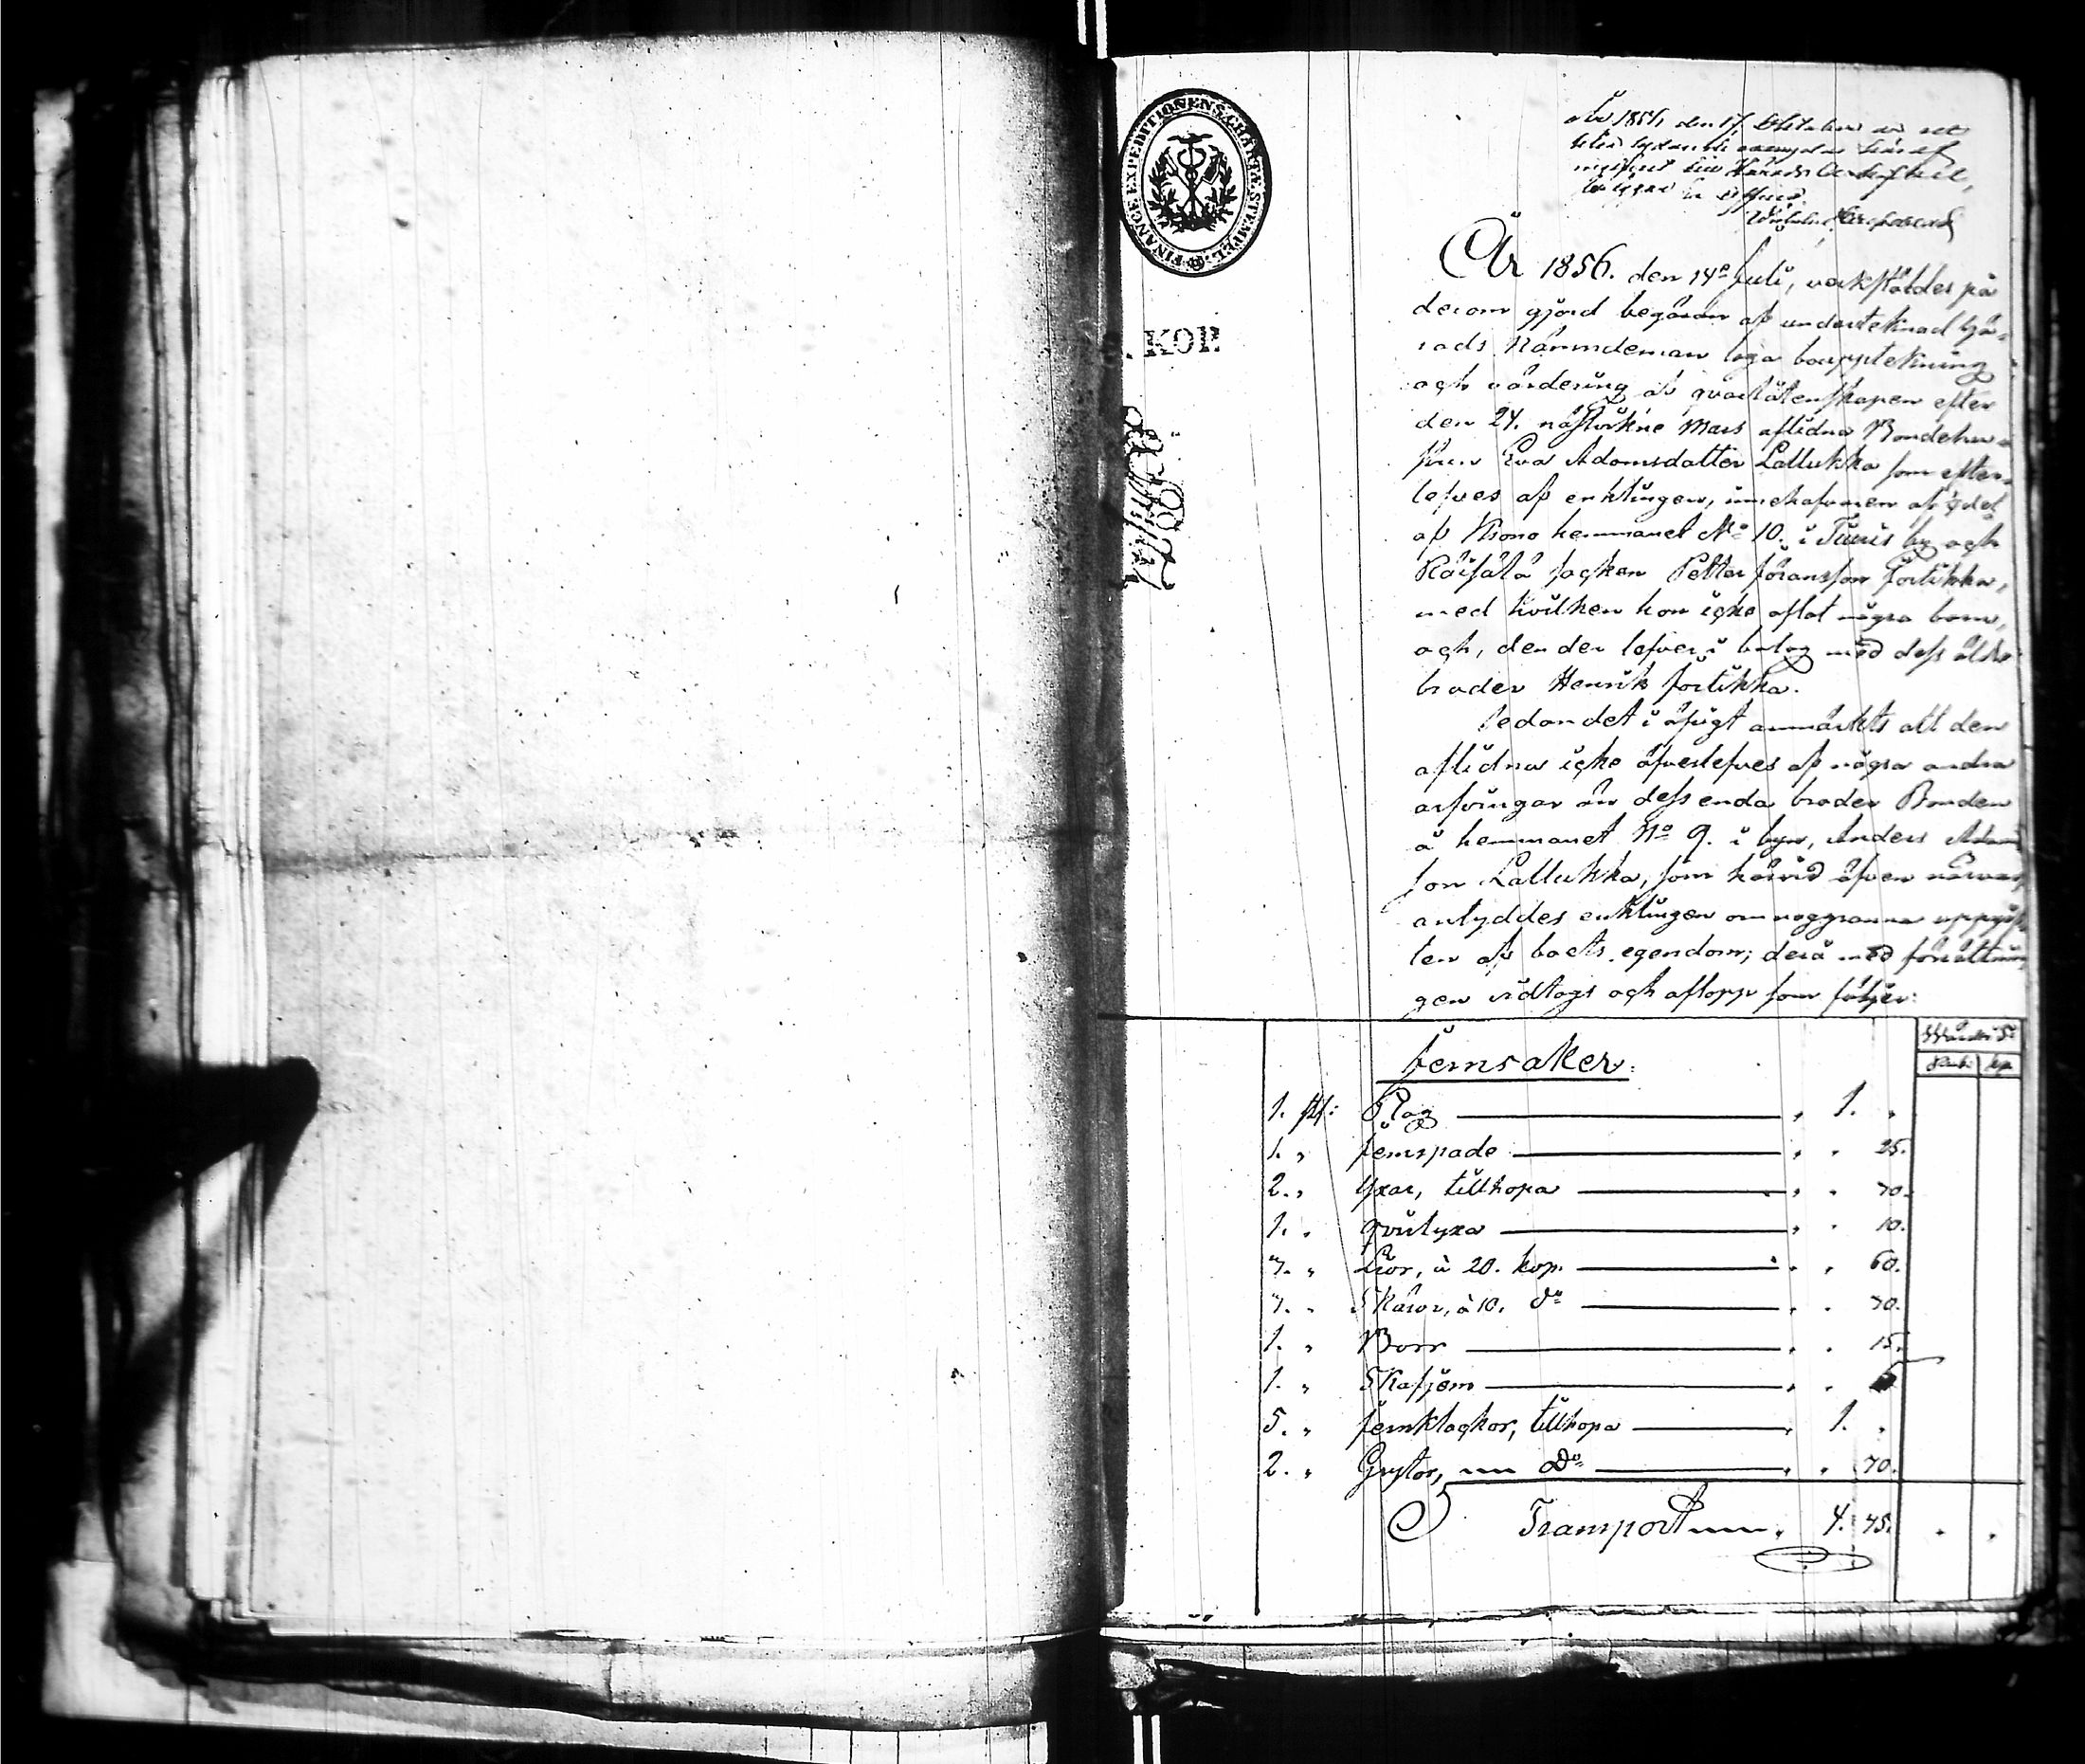 FINANCE EXPEDITIONENS CHARTÆ STEMPEL.
KOP.
År 1856. den 14de Juli, verkstäldes på
derom gjord begäran af undertecknad Hä-
rads Nämndeman laga bouppteckning
och värdering af qvarlåtenskapen efter
den 24. nästvikne Mars aflidna Bondehu-
strun Eva Adamsdatter Lallukka som efter-
lefves af enklingen, innehafvaren af
af Krono hemmanet No 10. i Tiuris by och
Räisälä socken Petter Göransson Jortikka,
med hvilken hon icke aflat några barn,
och, den der lefver i bolag med dess äldre
broder Henrik Jortikka.
Sedan det i öfrigt anmärkts att den
aflidna icke öfverlefves af några andra
arfvingar än dess enda broder Bonden
å hemmanet No 9. i byn, Anders Adams
son Lallukka, som härvid äfven närvar,
antyddes enklingen om noggranna uppgif-
ten af boets egendom; derå med förrättnin
gen vidtogs och aflopp som följer:
Rub. kop.
Jernsaker.
1. st: Plog " 1. "
1. " Jernspade " " 25.
2. " Yxar, tillhopa " " 70.
1. " qvistyxa " " 10.
3. " Liar, à 20. kop. " " 60.
7. " Skäror, à 10. do " " 70.
1. " Borr " " 15.
1. " Skafjern " "
5. " Jernklackor, tillhopa " 1. "
2. " Grytor, do " " 70.
Transport " 4. 75. " "